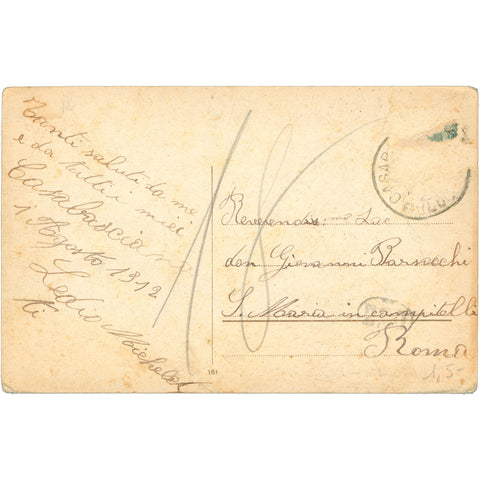 Tanti saluti da me
e da tutti i miei
Casabasciana
1 Agosto 1912
Ledio Michelet
ti
18
Reverendis:mo Luc
don Giovanni Barsocchi
S. Maria in campitelli
Roma
1,5-
181
CASAB